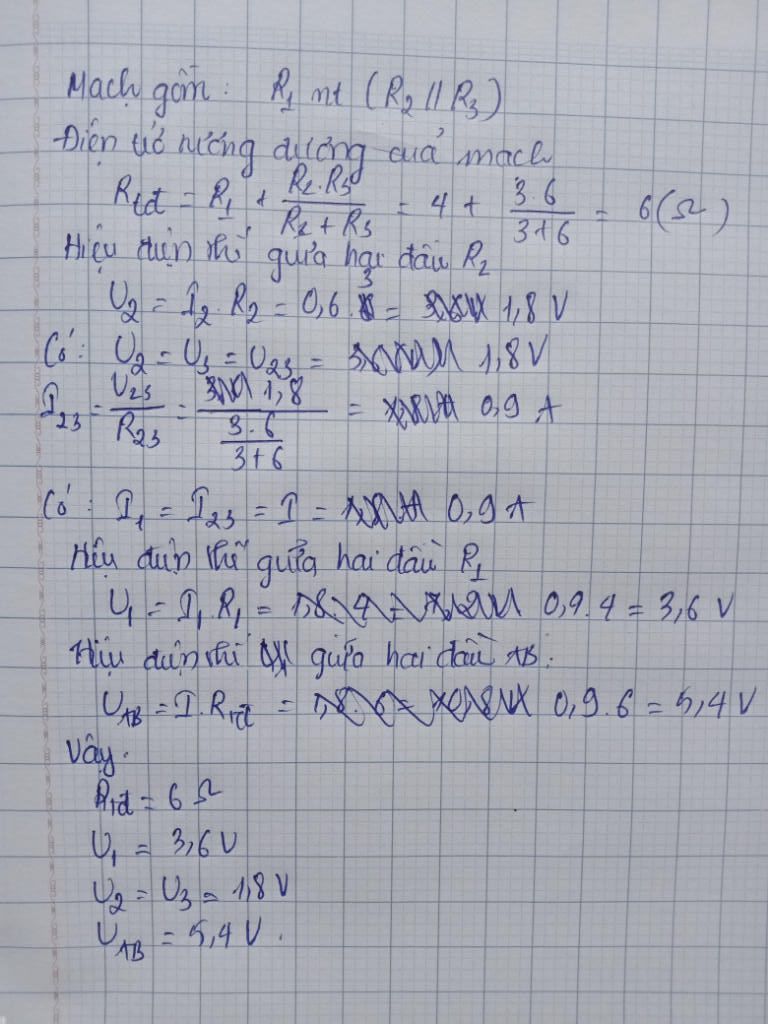 Mạch gồm: R₁ nt (R₂ // R₃)
Điện trở tương đương của mạch
R_tđ = R₁ + (R₂.R₃)/(R₂ + R₃) = 4 + (3.6)/(3+6) = 6(Ω)
Hiệu điện thế giữa hai đầu R₂
U₂ = I₂.R₂ = 0,6.3 = 1,8 V
Có: U₂ = U₃ = U₂₃ = 1,8 V
I₂₃ = U₂₃/R₂₃ = 1,8/((3.6)/(3+6)) = 0,9 A
Có: I₁ = I₂₃ = I = 0,9 A
Hiệu điện thế giữa hai đầu R₁
U₁ = I₁.R₁ = 0,9.4 = 3,6 V
Hiệu điện thế giữa hai đầu AB:
U_AB = I.R_tđ = 0,9.6 = 5,4 V
Vậy.
R_tđ = 6 Ω
U₁ = 3,6 V
U₂ = U₃ = 1,8 V
U_AB = 5,4 V.